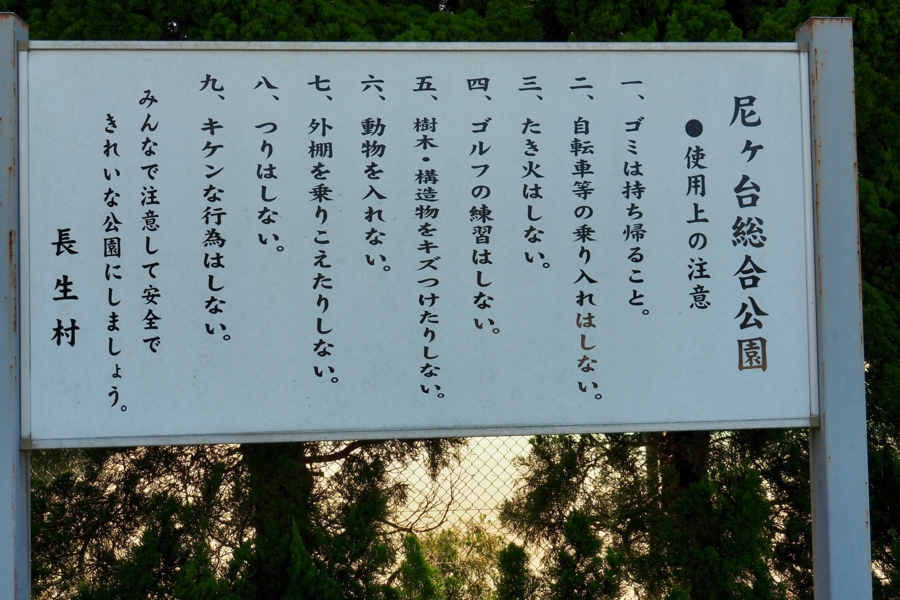 尼ヶ台総合公園
●使用上の注意
一、ゴミは持ち帰ること。
二、自転車等の乗り入れはしない。
三、たき火はしない。
四、ゴルフの練習はしない。
五、樹木・構造物をキズつけたりしない。
六、動物を入れない。
七、外棚を乗りこえたりしない。
八、つりはしない。
九、キケンな行為はしない。
みんなで注意して安全で
きれいな公園にしましょう。
長生村